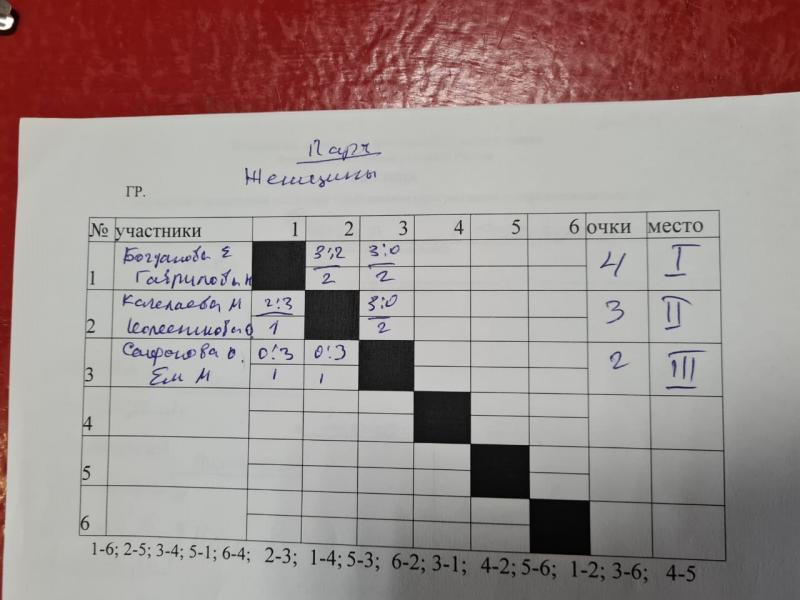 Пары
Женщины
ГР.
№ участники 1 2 3 4 5 6 очки место
Богданова Е 3:2 3:0
1 Гаврилова Н 2 2 4 I
М 2:3 3:0
2 1 2 3 II
Сафонова О. 0:3 0:3
3 Ем М 1 1 2 III
4
5
6
1-6; 2-5; 3-4; 5-1; 6-4; 2-3; 1-4; 5-3; 6-2; 3-1; 4-2; 5-6; 1-2; 3-6; 4-5